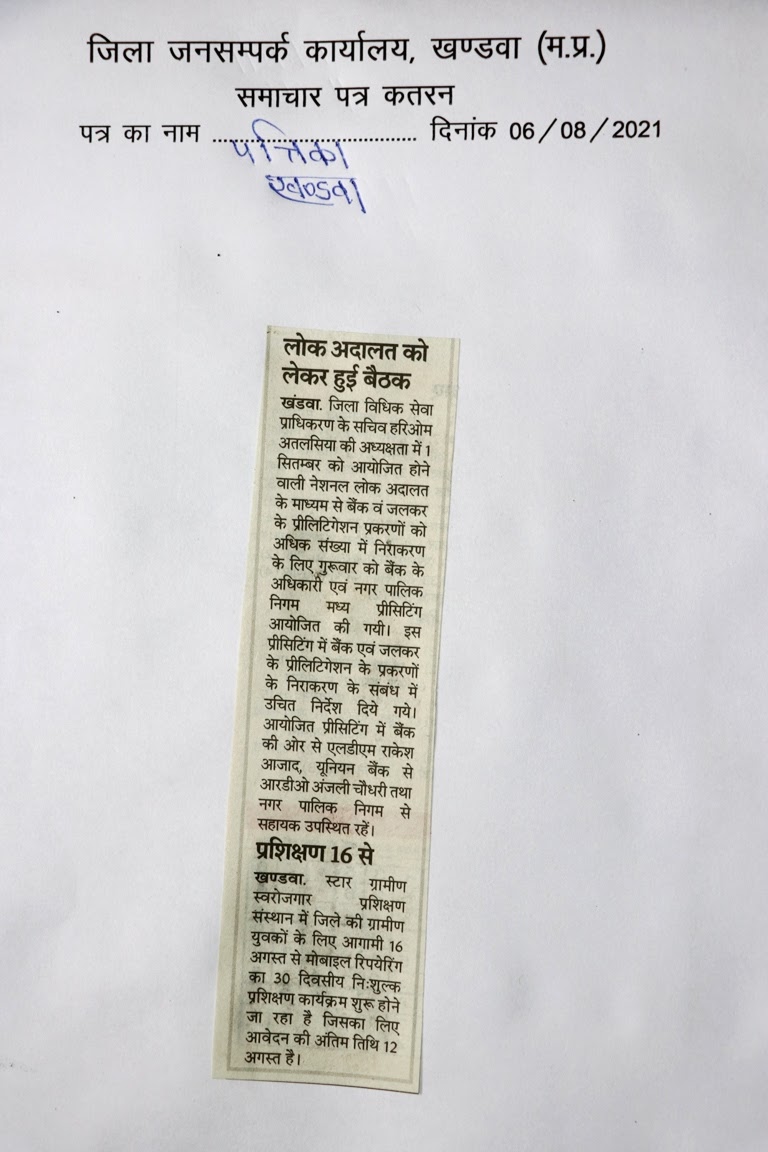 जिला जनसम्पर्क कार्यालय, खण्डवा (म.प्र.)
समाचार पत्र कतरन
पत्र का नाम .................................. दिनांक 06/08/2021
पत्रिका
खण्डवा
लोक अदालत को
लेकर हुई बैठक
खंडवा. जिला विधिक सेवा
प्राधिकरण के सचिव हरिओम
अतलसिया की अध्यक्षता में 1
सितम्बर को आयोजित होने
वाली नेशनल लोक अदालत
के माध्यम से बैंक वं जलकर
के प्रीलिटिगेशन प्रकरणों को
अधिक संख्या में निराकरण
के लिए गुरूवार को बैंक के
अधिकारी एवं नगर पालिक
निगम मध्य प्रीसिटिंग
आयोजित की गयी। इस
प्रीसिटिंग में बैंक एवं जलकर
के प्रीलिटिगेशन के प्रकरणों
के निराकरण के संबंध में
उचित निर्देश दिये गये।
आयोजित प्रीसिटिंग में बैंक
की ओर से एलडीएम राकेश
आजाद, यूनियन बैंक से
आरडीओ अंजली चौधरी तथा
नगर पालिक निगम से
सहायक उपस्थित रहें।
प्रशिक्षण 16 से
खण्डवा. स्टार ग्रामीण
स्वरोजगार प्रशिक्षण
संस्थान में जिले की ग्रामीण
युवकों के लिए आगामी 16
अगस्त से मोबाइल रिपयेरिंग
का 30 दिवसीय निःशुल्क
प्रशिक्षण कार्यक्रम शुरू होने
जा रहा है जिसका लिए
आवेदन की अंतिम तिथि 12
अगस्त है।